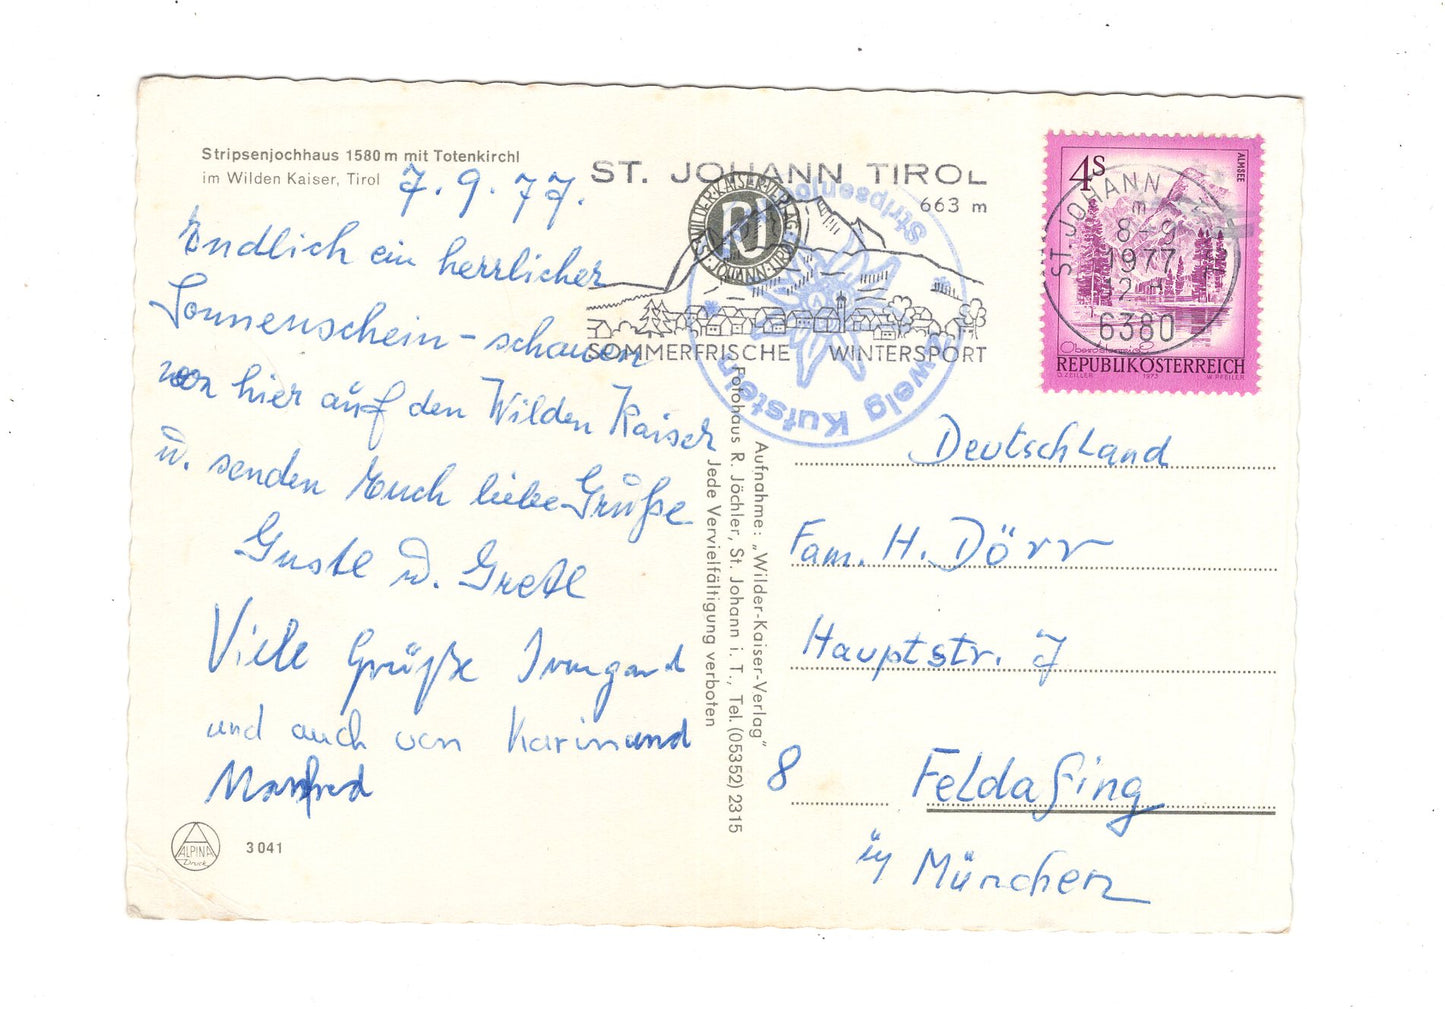 Stripsenjochhaus 1580 m mit Totenkirchl
im Wilden Kaiser, Tirol
7. 9. 77.
Endlich ein herrlicher
Sonnenschein - schauen
von hier auf den Wilden Kaiser
u. senden Euch liebe Grüße
Gustl u. Gretl
Viele Grüße Irmgard
und auch von Karin und
Manfred
ALPINA
Druck
3 041
ST. JOHANN TIROL
663 m
SOMMERFRISCHE WINTERSPORT
WILDER-KAISER-VERLAG
ST. JOHANN-TIROL
Stripsenjoch
Zweig Kufstein
Aufnahme: „Wilder-Kaiser-Verlag"
Fotohaus R. Jöchler, St. Johann i. T., Tel. (05352) 2315
Jede Vervielfältigung verboten
4S
ALMSEE
Oberösterreich
REPUBLIK ÖSTERREICH
O. ZEILLER 1973 W. PFEILER
ST. JOHANN
8-9
1977
12
6380
Deutschland
Fam. H. Dörr
Hauptstr. 7
8 Feldafing
b/ München